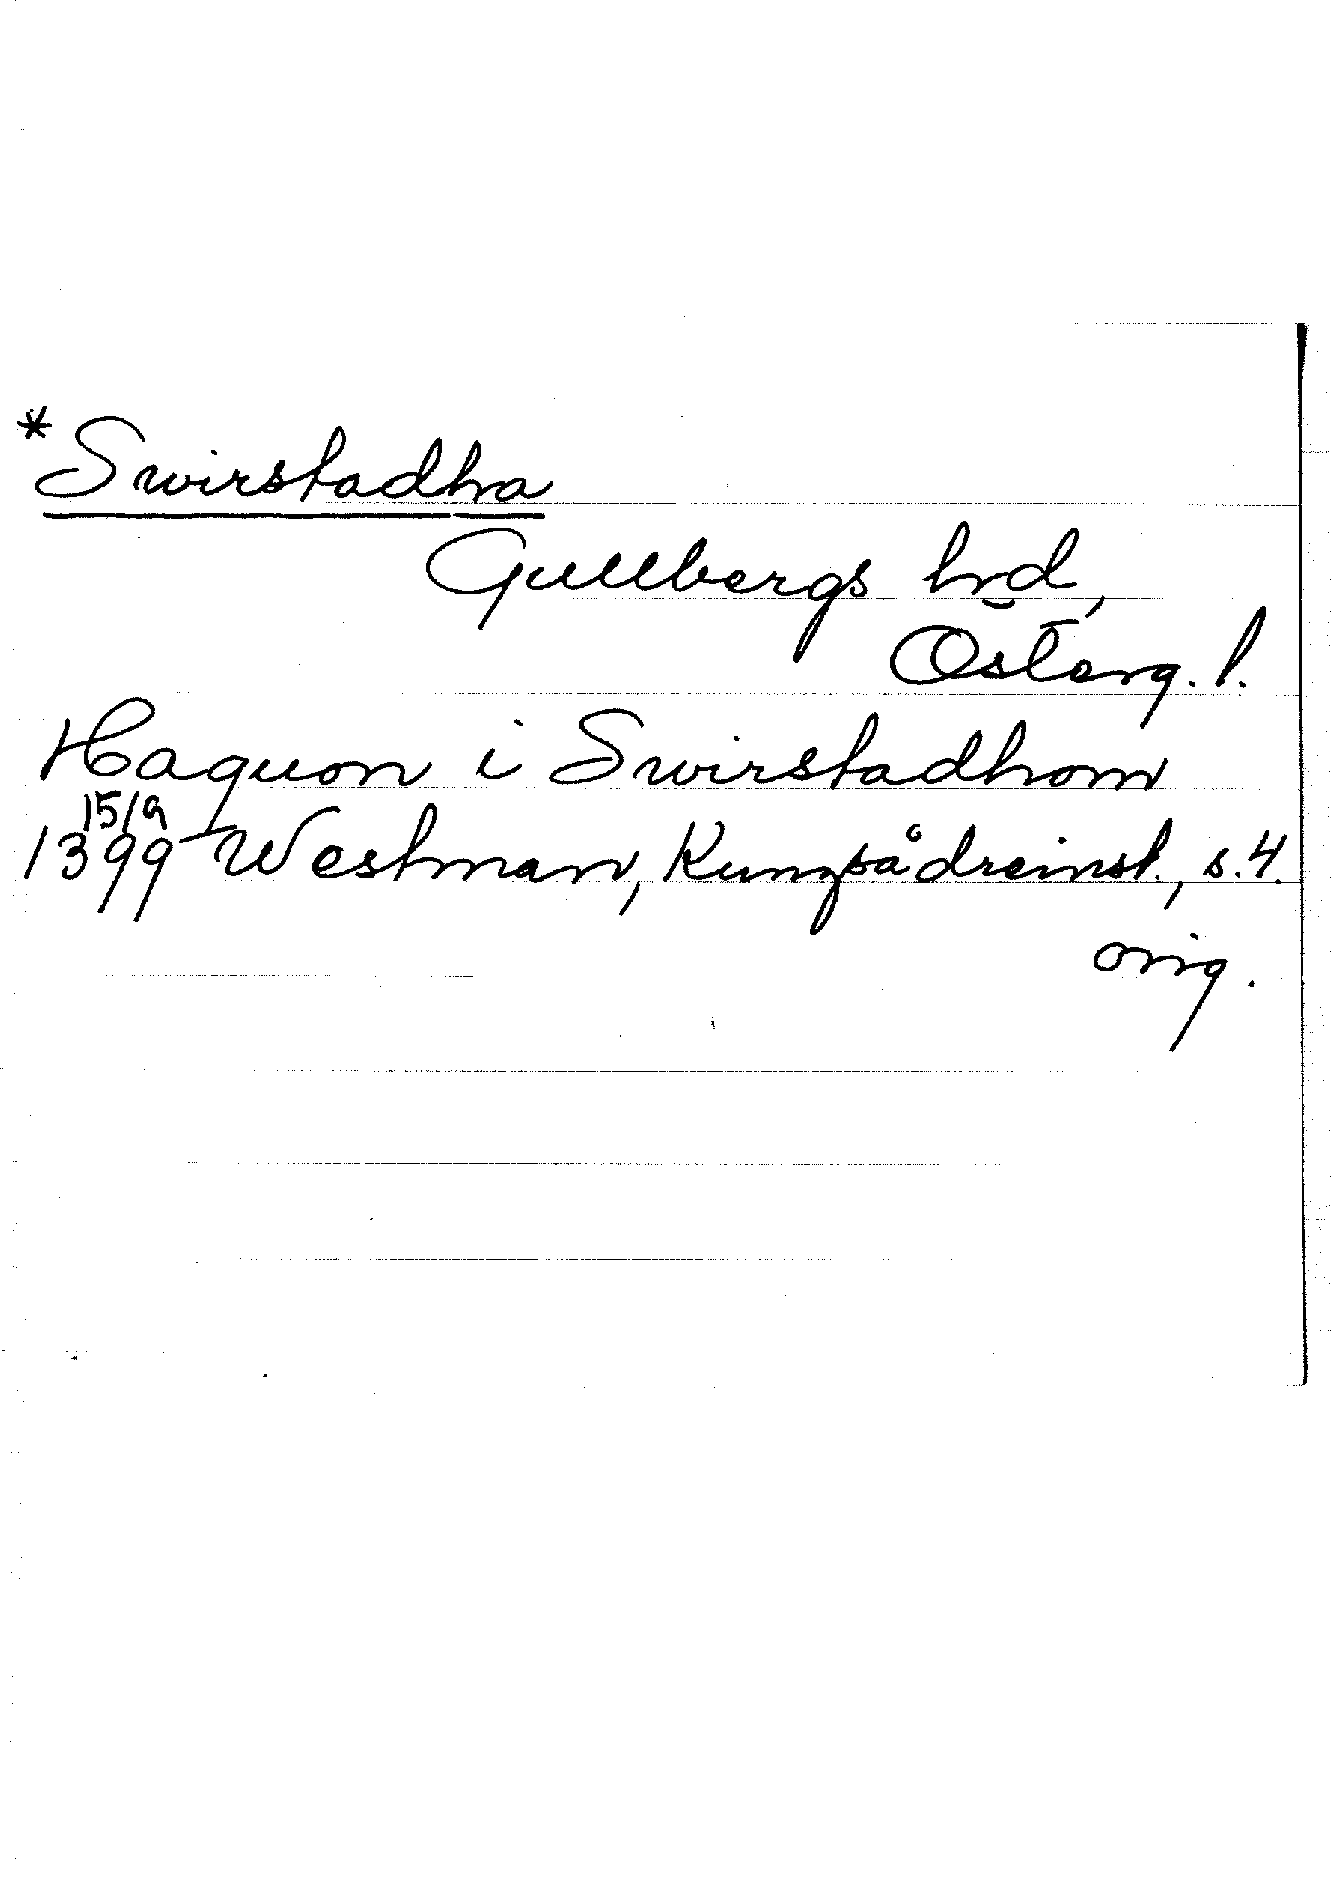 *Swirstadha
Gullbergs hrd,
Österg. l.
Haquon i Swirstadhom
1399 15/9 Westman, Kungsådreinst., s. 4.
orig.